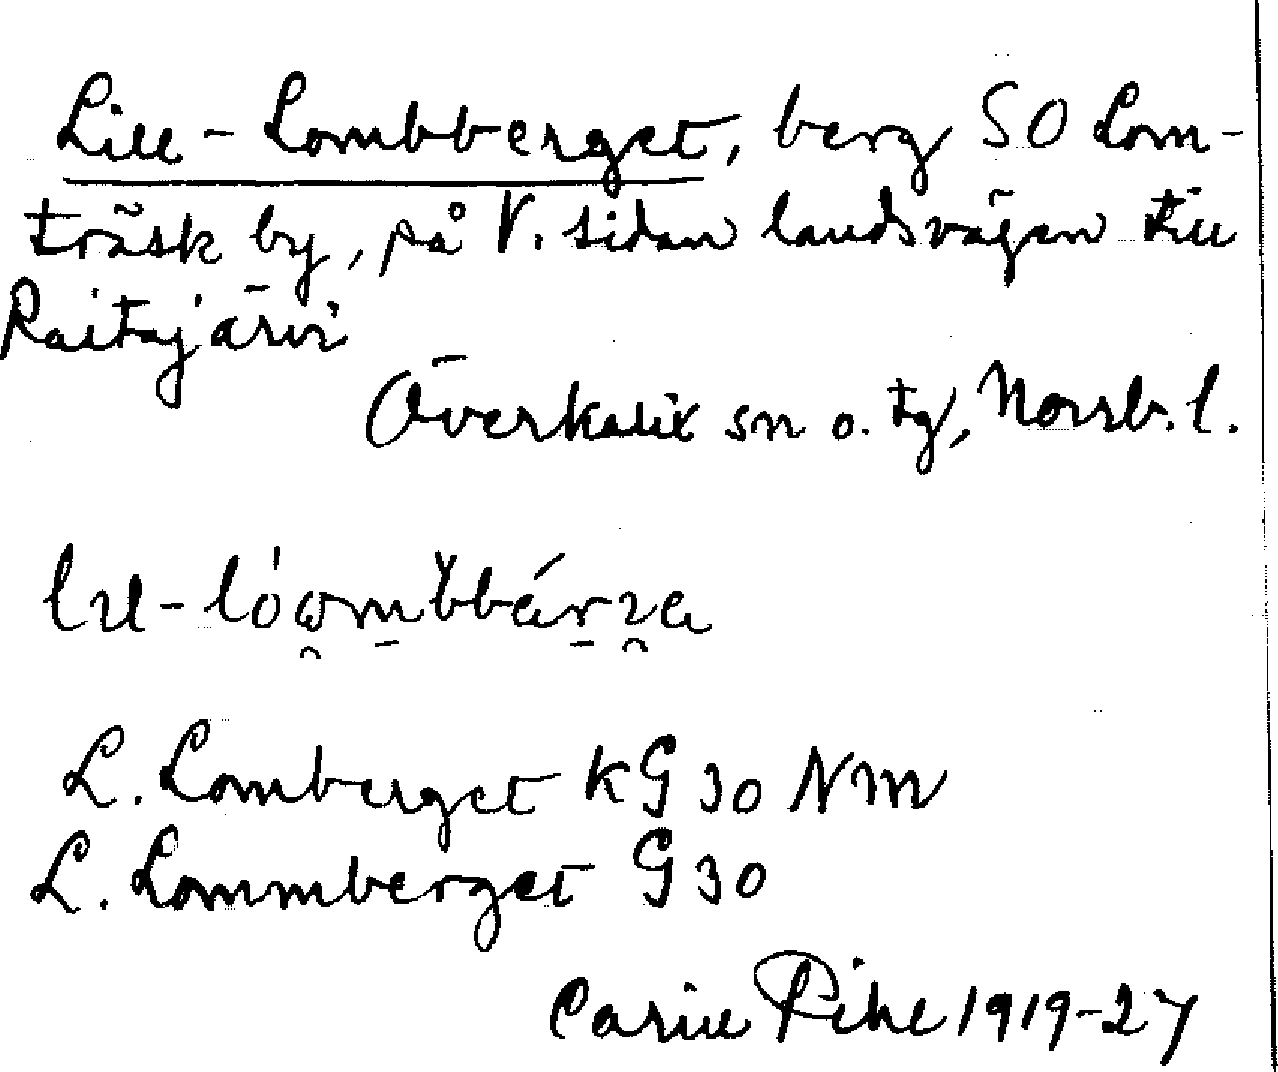 Lill-Lombberget, berg SO Lom-
träsk by, på V. sidan landsvägen till
Raitajärvi
Överkalix sn o. tg, Norrb. l.
L. Lomberget KG 30 NM
L. Lommberget G 30
Carin Pihl 1919-27